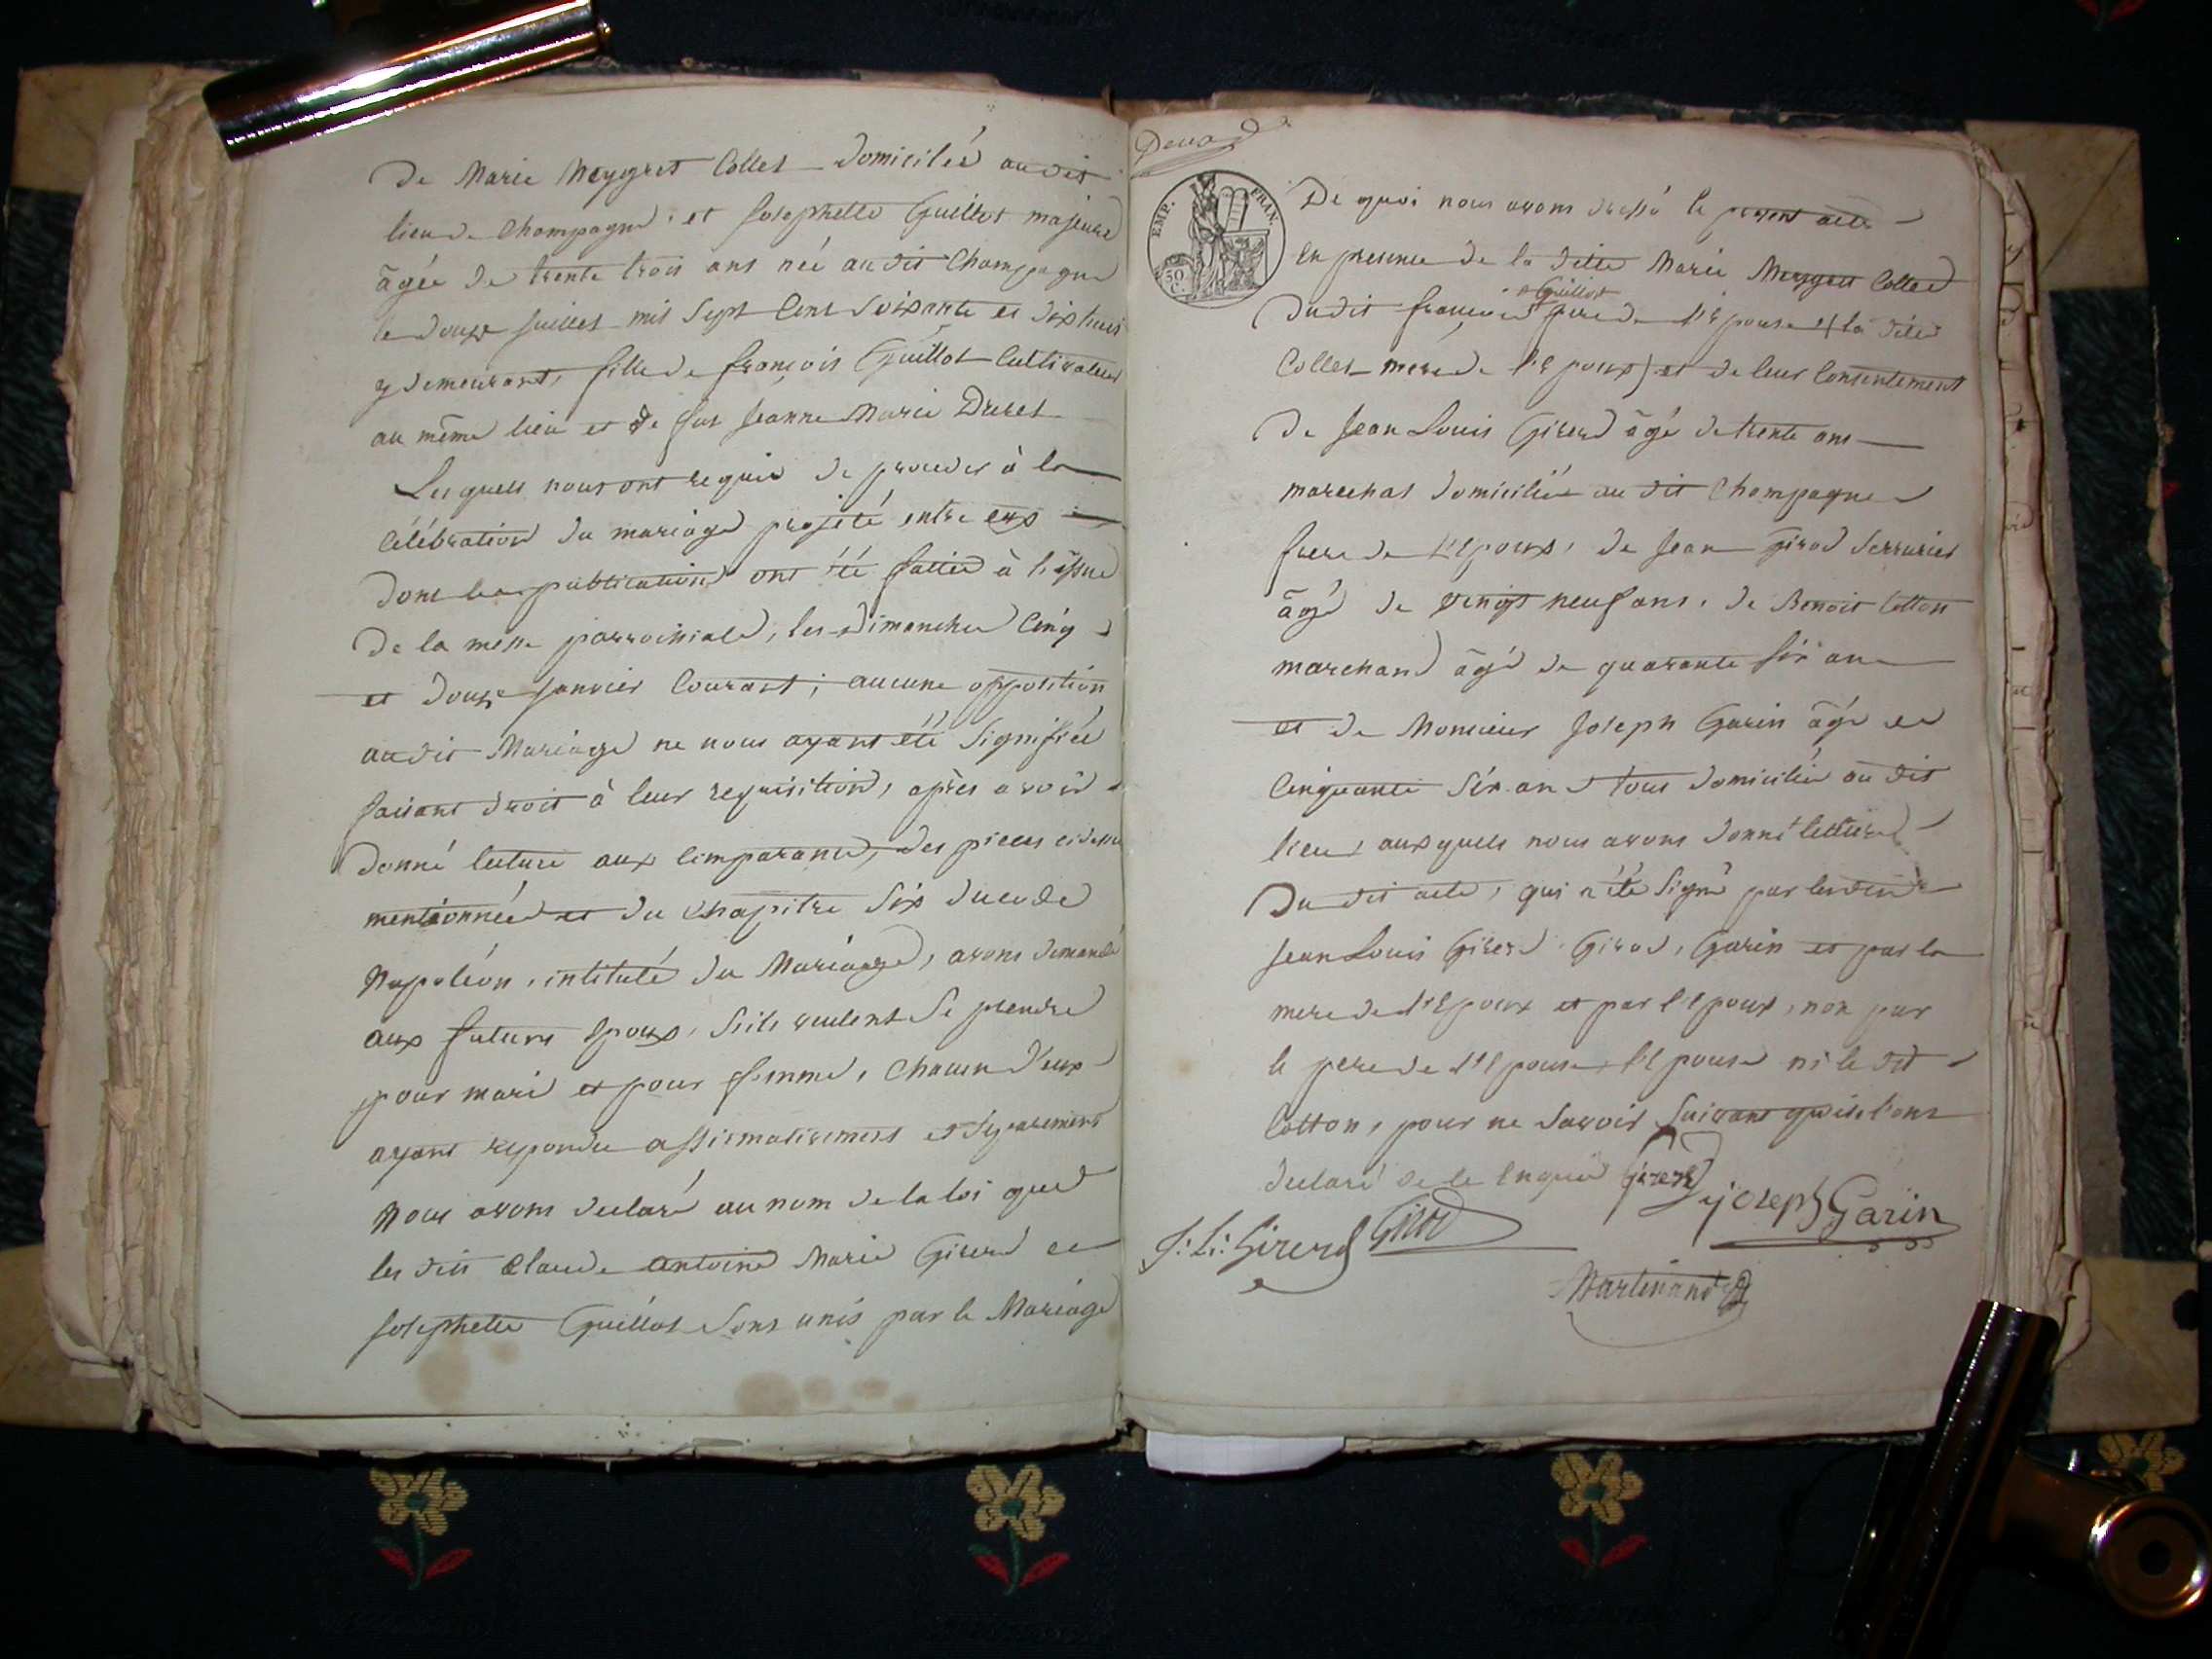 De Marie Meygret Collet domicilié au dit
lieu de Champagne, et Josephette Guillot majeure
âgée de trente trois ans née au dit Champagne
le douze juillet mil sept cent soixante et dix huit
y demeurant, fille de françois Guillot cultivateur
au même lieu et de fut Jeanne Marie Ducret
Lesquels nous ont requis de proceder à la
célébration du mariage projeté entre eux
dont les publications ont été faites à l'issue
de la messe parroissiale, les dimanches cinq
et douze janvier courant; aucune opposition
au dit Mariage ne nous ayant été signifiée
faisant droit à leur requisition, après avoir
donné lecture aux comparants, des pieces ci dessus
mentionnées et du chapitre six du code
Napoléon, intitulé du Mariage, avons demandé
aux futurs epoux, s'ils veulent se prendre
pour mari et pour femme, chacun d'eux
ayant repondu affirmativement et séparement
Nous avons declaré au nom de la loi que
les dits Claude antoine Marie Girerd et
Josephette Guillot sont unis par le Mariage
EMP. FRAN.
50 C.
De quoi nous avons dressé le present acte
en presence de la dite Marie Meygret Collet
Guillot
du dit françois pere de l'epouse (la dite
Collet mere de l'epoux) et de leur consentement
de Jean Louis Girerd âgé de trente ans
marechal domicilié au dit Champagne
frere de l'epoux, de Jean Girod serrurier
âgé de vingt neuf ans, de Benoit Cotton
marchand âgé de quarante six ans
et de Monsieur Joseph Garin âgé de
cinquante six ans tous domiciliés au dit
lieu, auxquels nous avons donné lecture
du dit acte, qui a été signé par les dits
Jean Louis Girerd, Girod, Garin et par la
mere de l'epoux et par l'epoux, non par
le pere de l'epouse, l'epouse ni le dit
Cotton, pour ne savoir suivant qu'ils l'ont
declaré de ce enquis Girerd
joseph Garin
J: L: Girerd Girod
Martinand